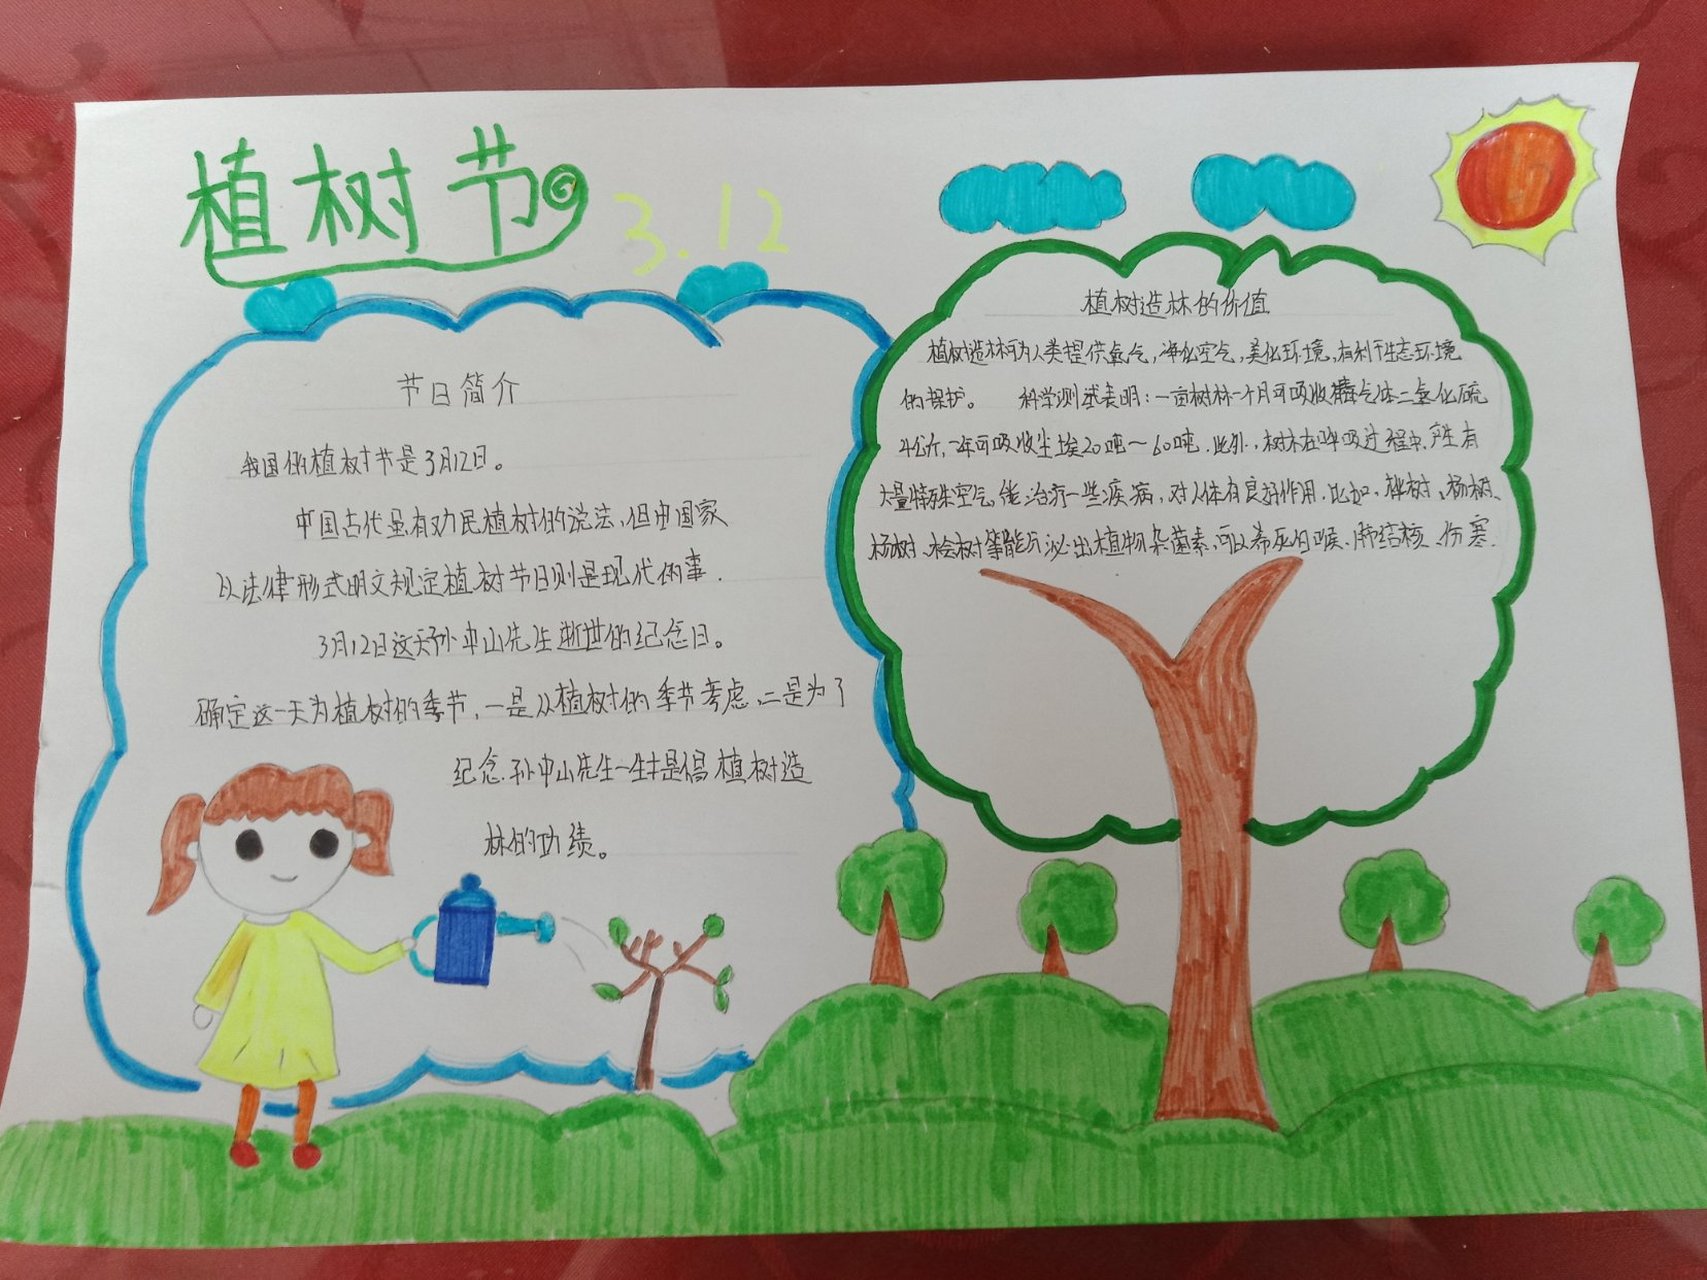 植树节
3.12
节日简介
我国的植树节是3月12日。
中国古代虽有劝民植树的说法,但中国家
以法律形式明文规定植树节日则是现代的事.
3月12日这天孙中山先生逝世的纪念日。
确定这一天为植树的季节,一是从植树的季节考虑、二是为了
纪念.孙中山先生一生提倡植树造
林的功绩。
植树造林的价值
植树造林可为人类提供氧气,净化空气,美化环境,有利于生态环境
的保护。 科学测试表明:一亩树林一个月可吸收毒气体二氧化硫
4公斤,一年可吸收尘埃20吨~60吨.此外,树木在呼吸过程中,产生有
大量特殊空气,能治疗一些疾病,对人体有良好作用.比如,桦树、杨树、
杨树、桧树等能分泌出植物杀菌素,可以杀死白喉、肺结核、伤寒.